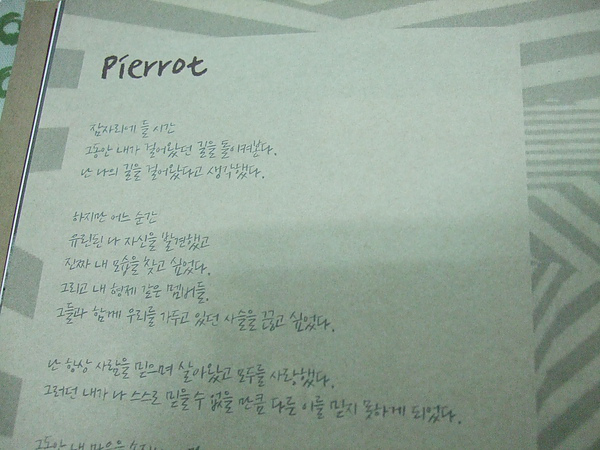 Pierrot
잠자리에 들 시간
그동안 내가 걸어왔던 길을 돌이켜본다.
난 나의 길을 걸어왔다고 생각했다.
하지만 어느 순간
유린된 나 자신을 발견했고
진짜 내 모습을 찾고 싶었다.
그리고 내 형제 같은 멤버들.
그들과 함께 우리를 가두고 있던 사슬을 끊고 싶었다.
난 항상 사람을 믿으며 살아왔고 모두를 사랑했다.
그러던 내가 나 스스로 믿을 수 없을 만큼 다른 이를 믿지 못하게 되었다.
그동안 내 마음을